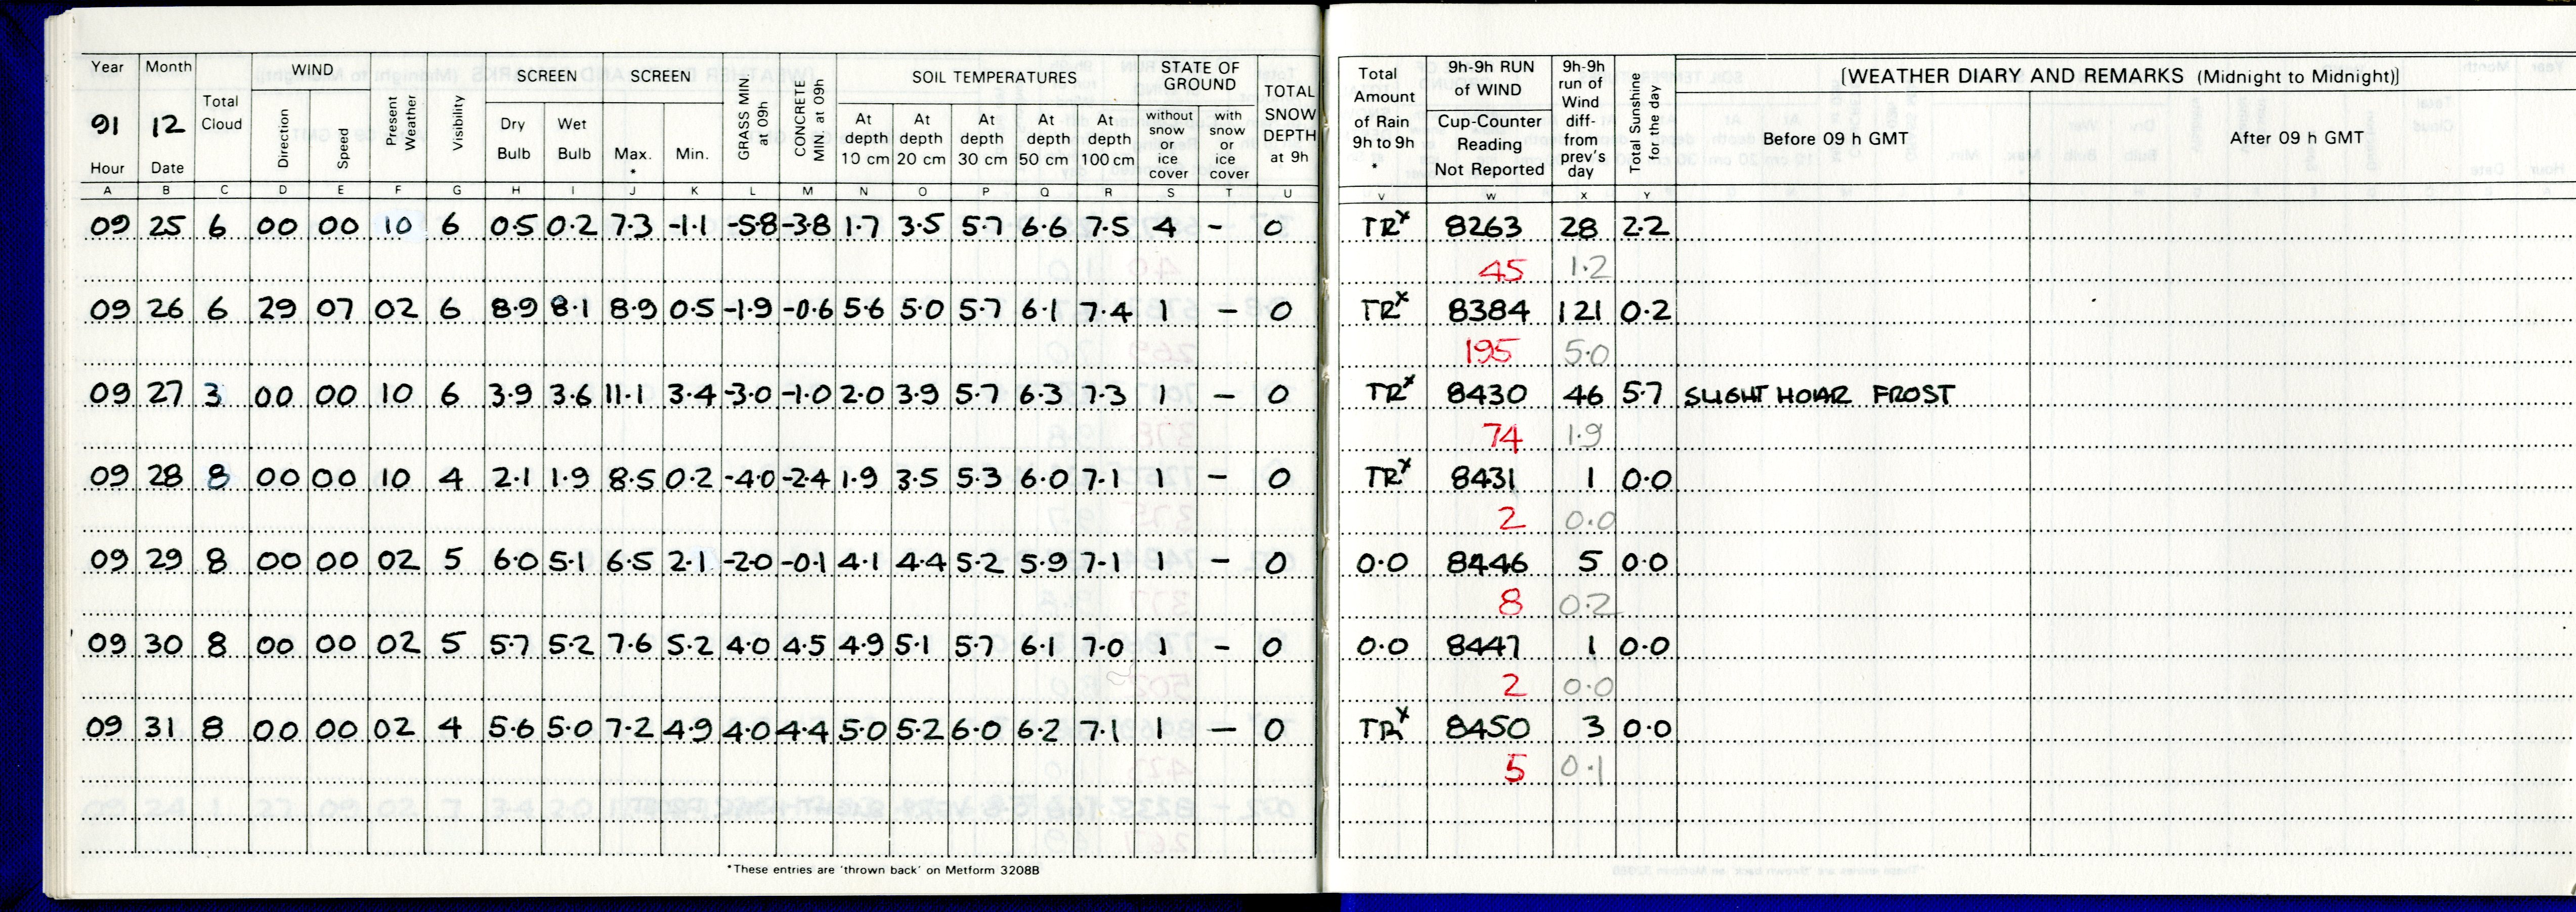 Year Month Total Cloud WIND Present Weather Visibility SCREEN SCREEN GRASS MIN at 09h CONCRETE MIN at 09h SOIL TEMPERATURES STATE OF GROUND TOTAL SNOW DEPTH at 9h Total Amount of Rain 9h to 9h * 9h-9h RUN of WIND 9h-9h run of Wind diff- from prev's day Total Sunshine for the day [WEATHER DIARY AND REMARKS (Midnight to Midnight)]
91 12 Direction Speed Dry Bulb Wet Bulb Max. * Min. At depth 10 cm At depth 20 cm At depth 30 cm At depth 50 cm At depth 100 cm without snow or ice cover with snow or ice cover Cup-Counter Reading Not Reported Before 09 h GMT After 09 h GMT
Hour Date
A B C D E F G H I J K L M N O P Q R S T U V W X Y
09 25 6 00 00 10 6 0.5 0.2 7.3 -1.1 -5.8 -3.8 1.7 3.5 5.7 6.6 7.5 4 - 0 TRx 8263 28 2.2
45 1.2
09 26 6 29 07 02 6 8.9 8.1 8.9 0.5 -1.9 -0.6 5.6 5.0 5.7 6.1 7.4 1 - 0 TRx 8384 121 0.2
195 5.0
09 27 3 00 00 10 6 3.9 3.6 11.1 3.4 -3.0 -1.0 2.0 3.9 5.7 6.3 7.3 1 - 0 TRx 8430 46 5.7 SLIGHT HOAR FROST
74 1.9
09 28 8 00 00 10 4 2.1 1.9 8.5 0.2 -4.0 -2.4 1.9 3.5 5.3 6.0 7.1 1 - 0 TRx 8431 1 0.0
2 0.0
09 29 8 00 00 02 5 6.0 5.1 6.5 2.1 -2.0 -0.1 4.1 4.4 5.2 5.9 7.1 1 - 0 0.0 8446 5 0.0
8 0.2
09 30 8 00 00 02 5 5.7 5.2 7.6 5.2 4.0 4.5 4.9 5.1 5.7 6.1 7.0 1 - 0 0.0 8447 1 0.0
2 0.0
09 31 8 00 00 02 4 5.6 5.0 7.2 4.9 4.0 4.4 5.0 5.2 6.0 6.2 7.1 1 - 0 TRx 8450 3 0.0
5 0.1
*These entries are 'thrown back' on Metform 3208B